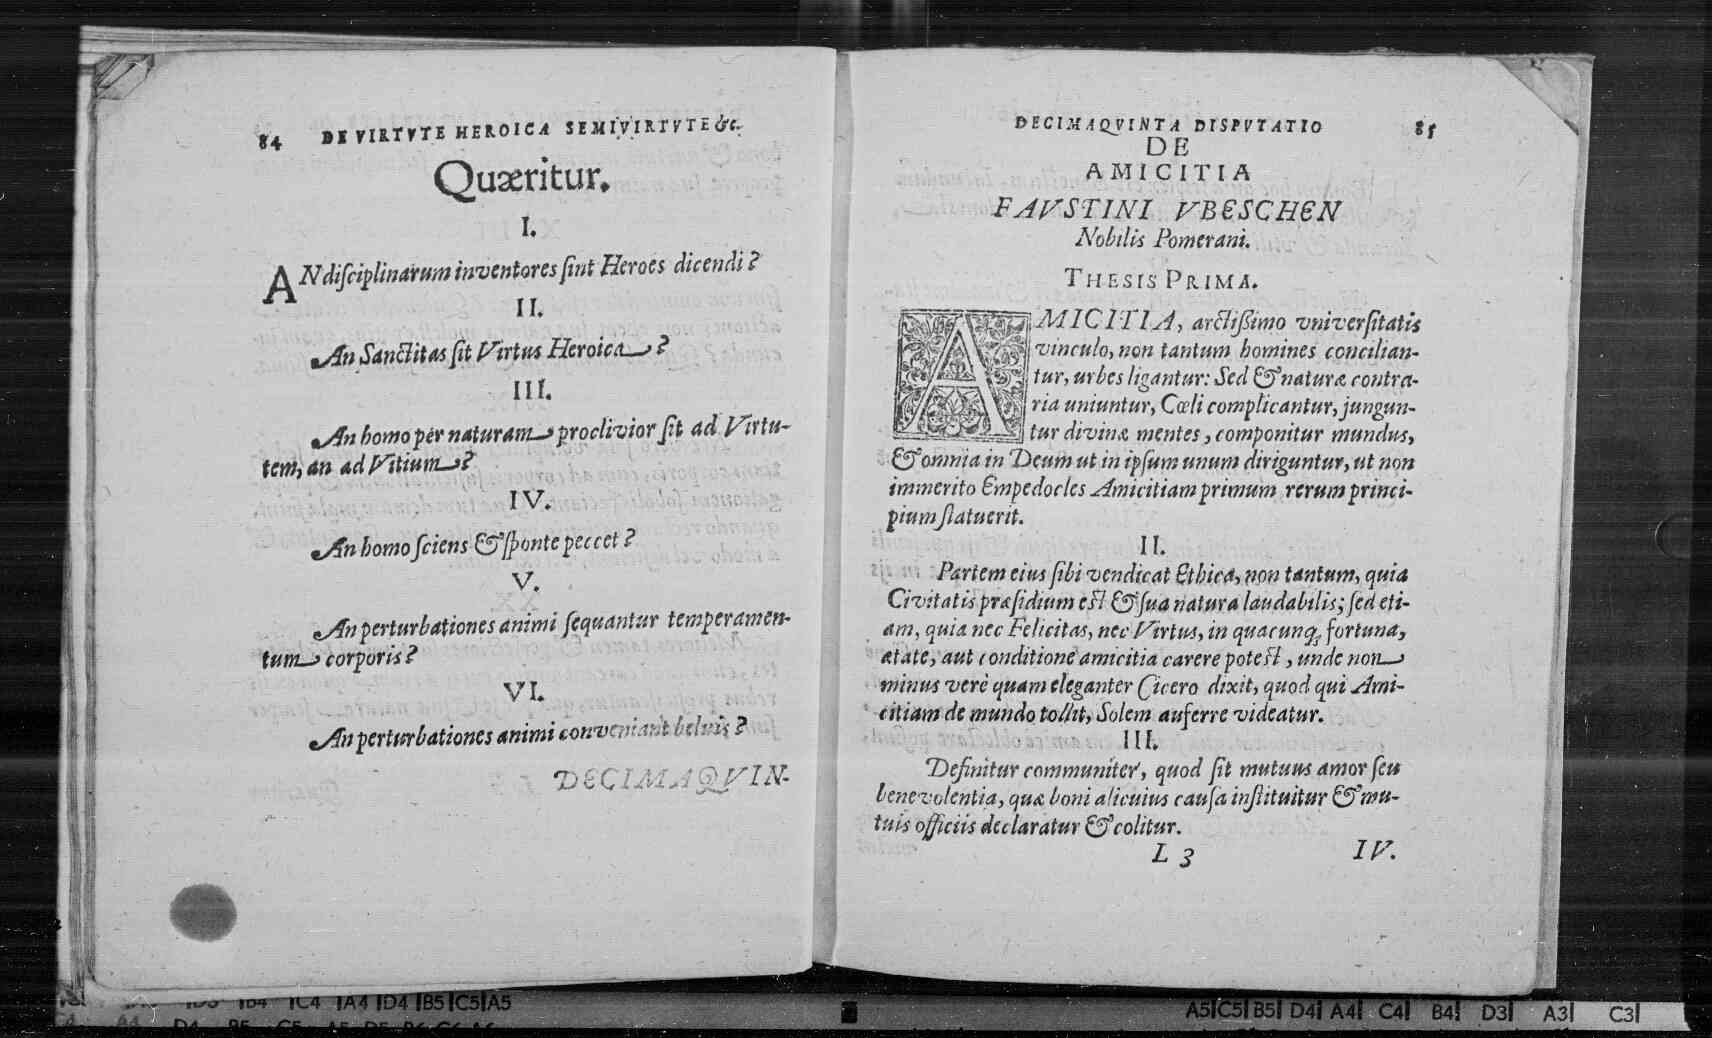 84 DE VIRTVTE HEROICA SEMIVIRTVTE &c.
Quæritur.
I.
AN diſciplinarum inventores ſint Heroës dicendi?
II.
An Sanctitas ſit Virtus Heroica?
III.
An homo per naturam proclivior ſit ad Virtu-
tem, an ad Vitium?
IV.
An homo ſciens & ſponte peccet?
V.
An perturbationes animi ſequantur temperamen-
tum corporis?
VI.
An perturbationes animi conveniant beluis?
DECIMAQVIN-
DECIMAQVINTA DISPVTATIO 85
DE
AMICITIA
FAVSTINI VBESCHEN
Nobilis Pomerani.
THESIS PRIMA.
AMICITIA, arctißimo univerſitatis
vinculo, non tantum homines concilian-
tur, urbes ligantur: Sed & naturæ contra-
ria uniuntur, Cœli complicantur, jungun-
tur divinæ mentes, componitur mundus,
& omnia in Deum ut in ipſum unum diriguntur, ut non
immerito Empedocles Amicitiam primum rerum princi-
pium ſtatuerit.
II.
Partem eius ſibi vendicat Ethica, non tantum, quia
Civitatis præſidium eſt & ſua natura laudabilis; ſed eti-
am, quia nec Felicitas, nec Virtus, in quacunq; fortuna,
ætate, aut conditione amicitia carere poteſt, unde non
minus verè quam eleganter Cicero dixit, quod qui Ami-
citiam de mundo tollit, Solem auferre videatur.
III.
Definitur communiter, quod ſit mutuus amor ſeu
benevolentia, quæ boni alicuius cauſa inſtituitur & mu-
tuis officiis declaratur & colitur.
L 3 IV.
B4 C4 A4 D4 B5 C5 A5
A5 C5 B5 D4 A4 C4 B4 D3 A3 C3